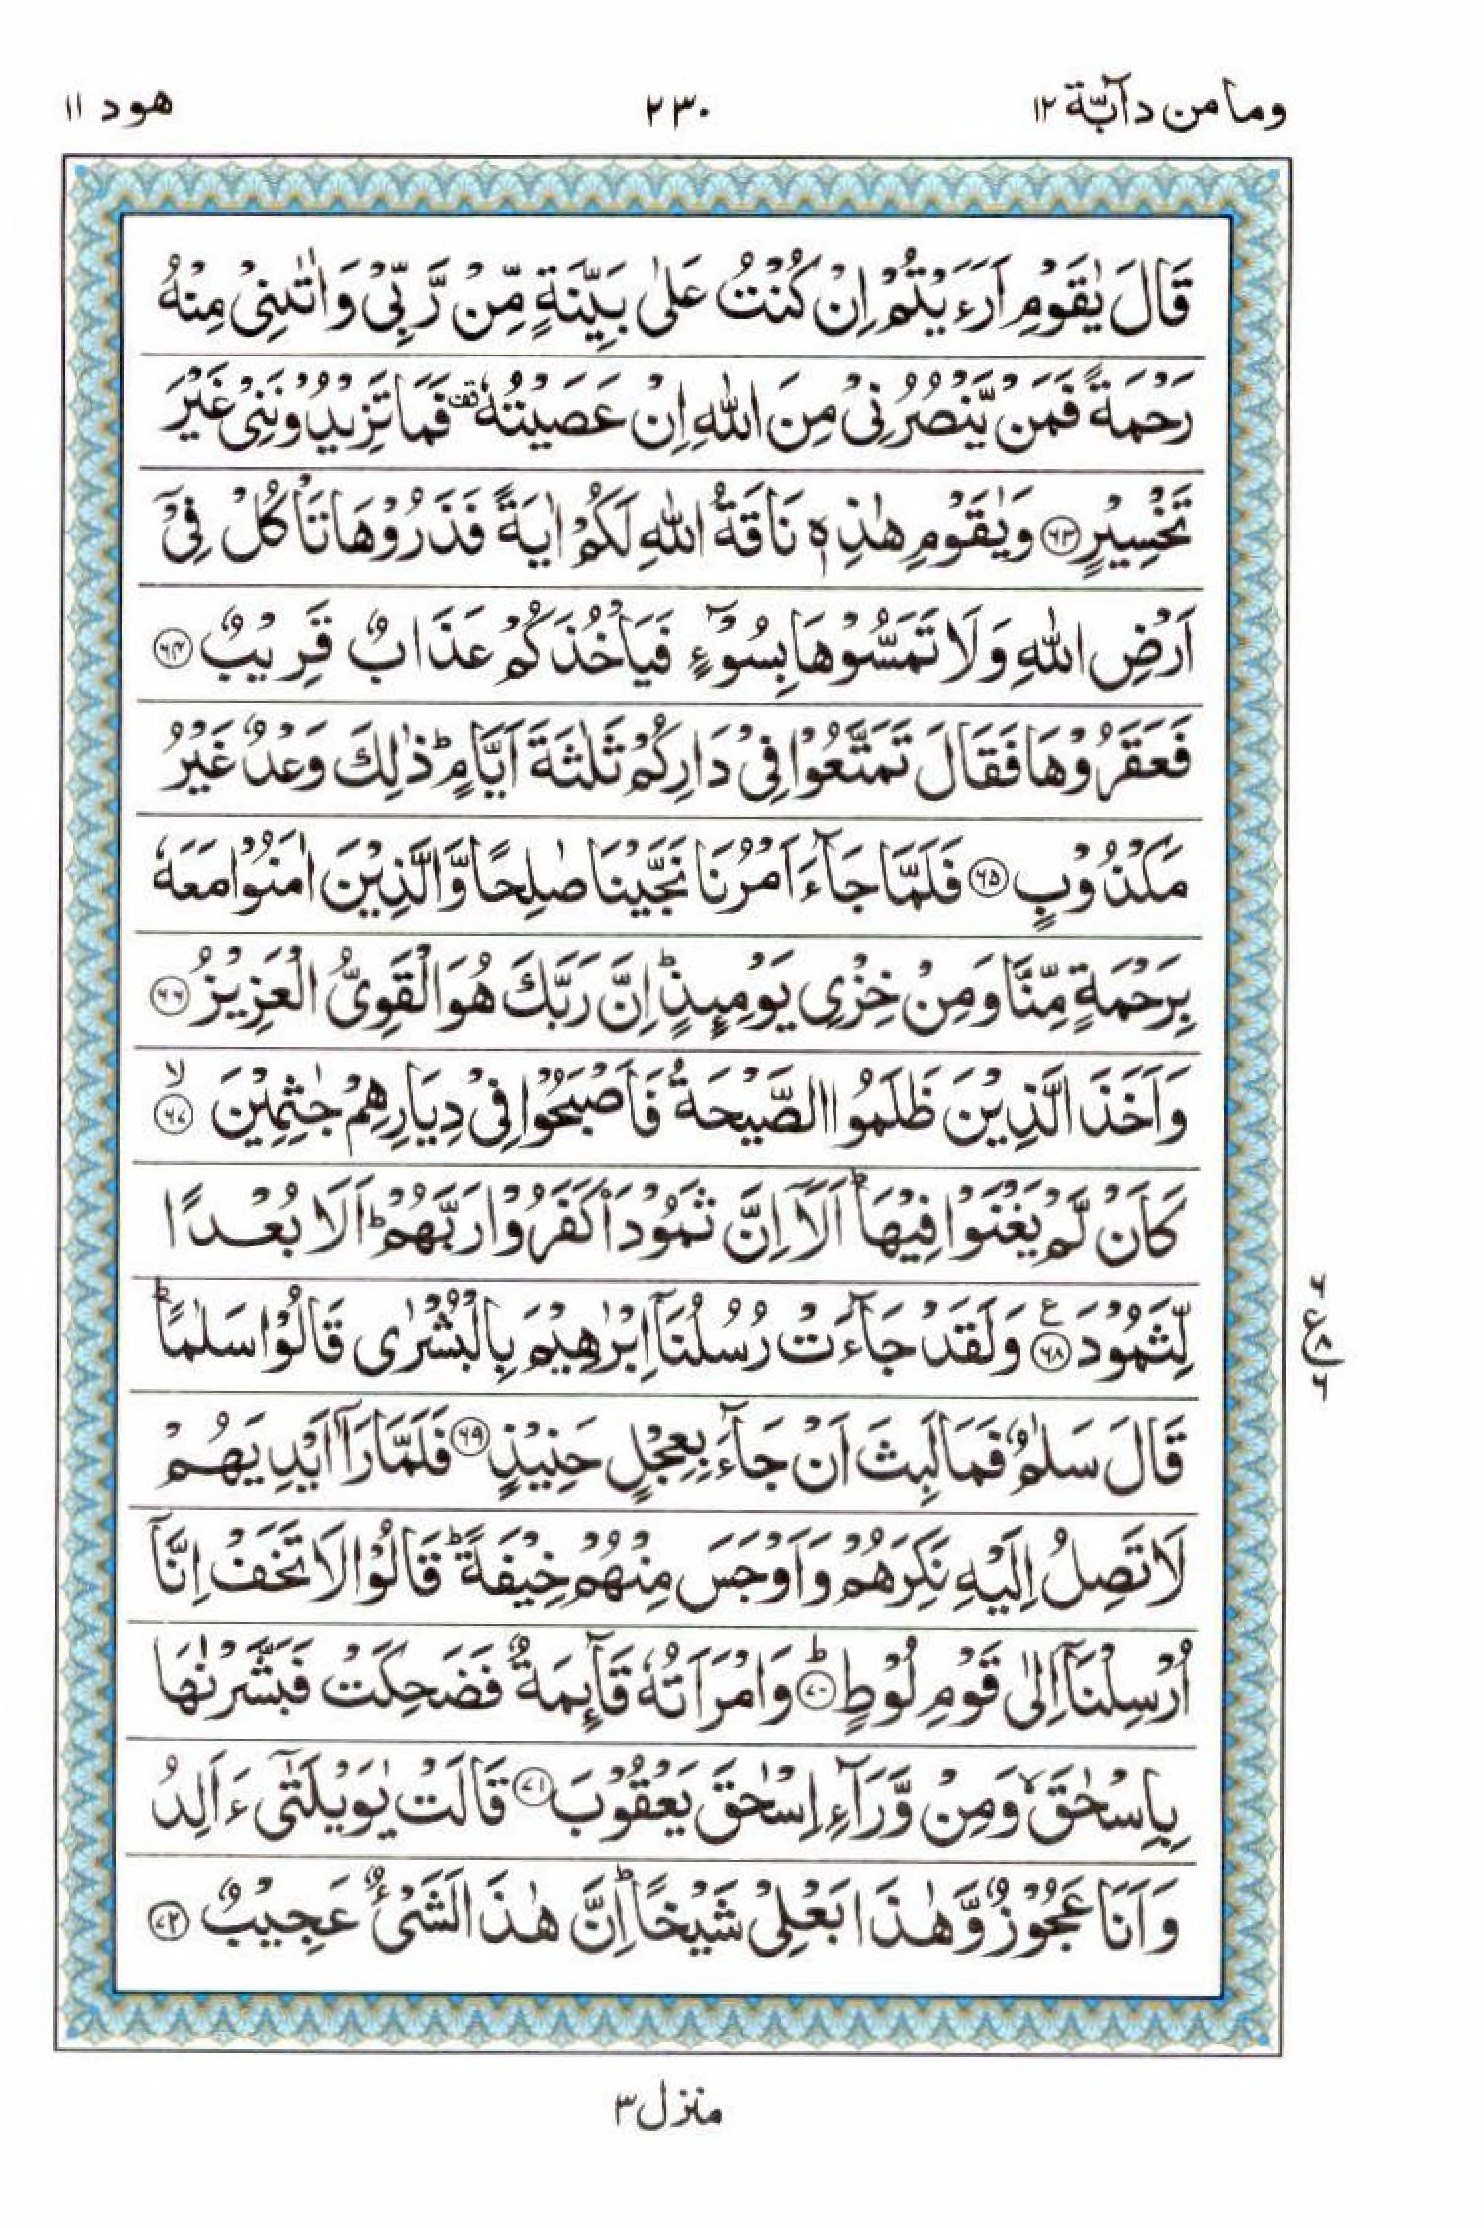 وما من دآبّة ١٢
٢٣٠
هود ١١
قَالَ يٰقَوْمِ اَرَءَيْتُمْ اِنْ كُنْتُ عَلٰى بَيِّنَةٍ مِّنْ رَّبِّيْ وَاٰتٰىنِيْ مِنْهُ
رَحْمَةً فَمَنْ يَّنْصُرُنِيْ مِنَ اللّٰهِ اِنْ عَصَيْتُهٗ ۛقف فَمَا تَزِيْدُوْنَنِيْ غَيْرَ
تَخْسِيْرٍ ﴿۶۳﴾ وَيٰقَوْمِ هٰذِهٖ نَاقَةُ اللّٰهِ لَكُمْ اٰيَةً فَذَرُوْهَا تَاْكُلْ فِيْۤ
اَرْضِ اللّٰهِ وَلَا تَمَسُّوْهَا بِسُوْٓءٍ فَيَاْخُذَكُمْ عَذَابٌ قَرِيْبٌ ﴿۶۴﴾
فَعَقَرُوْهَا فَقَالَ تَمَتَّعُوْا فِيْ دَارِكُمْ ثَلٰثَةَ اَيَّامٍ ؕ ذٰلِكَ وَعْدٌ غَيْرُ
مَكْذُوْبٍ ﴿۶۵﴾ فَلَمَّا جَآءَ اَمْرُنَا نَجَّيْنَا صٰلِحًا وَّالَّذِيْنَ اٰمَنُوْا مَعَهٗ
بِرَحْمَةٍ مِّنَّا وَمِنْ خِزْيِ يَوْمِئِذٍ ؕ اِنَّ رَبَّكَ هُوَ الْقَوِيُّ الْعَزِيْزُ ﴿۶۶﴾
وَاَخَذَ الَّذِيْنَ ظَلَمُوا الصَّيْحَةُ فَاَصْبَحُوْا فِيْ دِيَارِهِمْ جٰثِمِيْنَ ۙ﴿۶۷﴾
كَاَنْ لَّمْ يَغْنَوْا فِيْهَا ؕ اَلَاۤ اِنَّ ثَمُوْدَا۟ كَفَرُوْا رَبَّهُمْ ؕ اَلَا بُعْدًا
لِّثَمُوْدَ ﴿۶۸﴾ع وَلَقَدْ جَآءَتْ رُسُلُنَاۤ اِبْرٰهِيْمَ بِالْبُشْرٰى قَالُوْا سَلٰمًا ؕ
قَالَ سَلٰمٌ فَمَا لَبِثَ اَنْ جَآءَ بِعِجْلٍ حَنِيْذٍ ﴿۶۹﴾ فَلَمَّا رَاٰۤ اَيْدِيَهُمْ
لَا تَصِلُ اِلَيْهِ نَكِرَهُمْ وَاَوْجَسَ مِنْهُمْ خِيْفَةً ؕ قَالُوْا لَا تَخَفْ اِنَّاۤ
اُرْسِلْنَاۤ اِلٰى قَوْمِ لُوْطٍ ؕ﴿۷۰﴾ وَامْرَاَتُهٗ قَآئِمَةٌ فَضَحِكَتْ فَبَشَّرْنٰهَا
بِاِسْحٰقَ ۙ وَمِنْ وَّرَآءِ اِسْحٰقَ يَعْقُوْبَ ﴿۷۱﴾ قَالَتْ يٰوَيْلَتٰٓى ءَاَلِدُ
وَاَنَا عَجُوْزٌ وَّهٰذَا بَعْلِيْ شَيْخًا ؕ اِنَّ هٰذَا لَشَيْءٌ عَجِيْبٌ ﴿۷۲﴾
منزل ٣